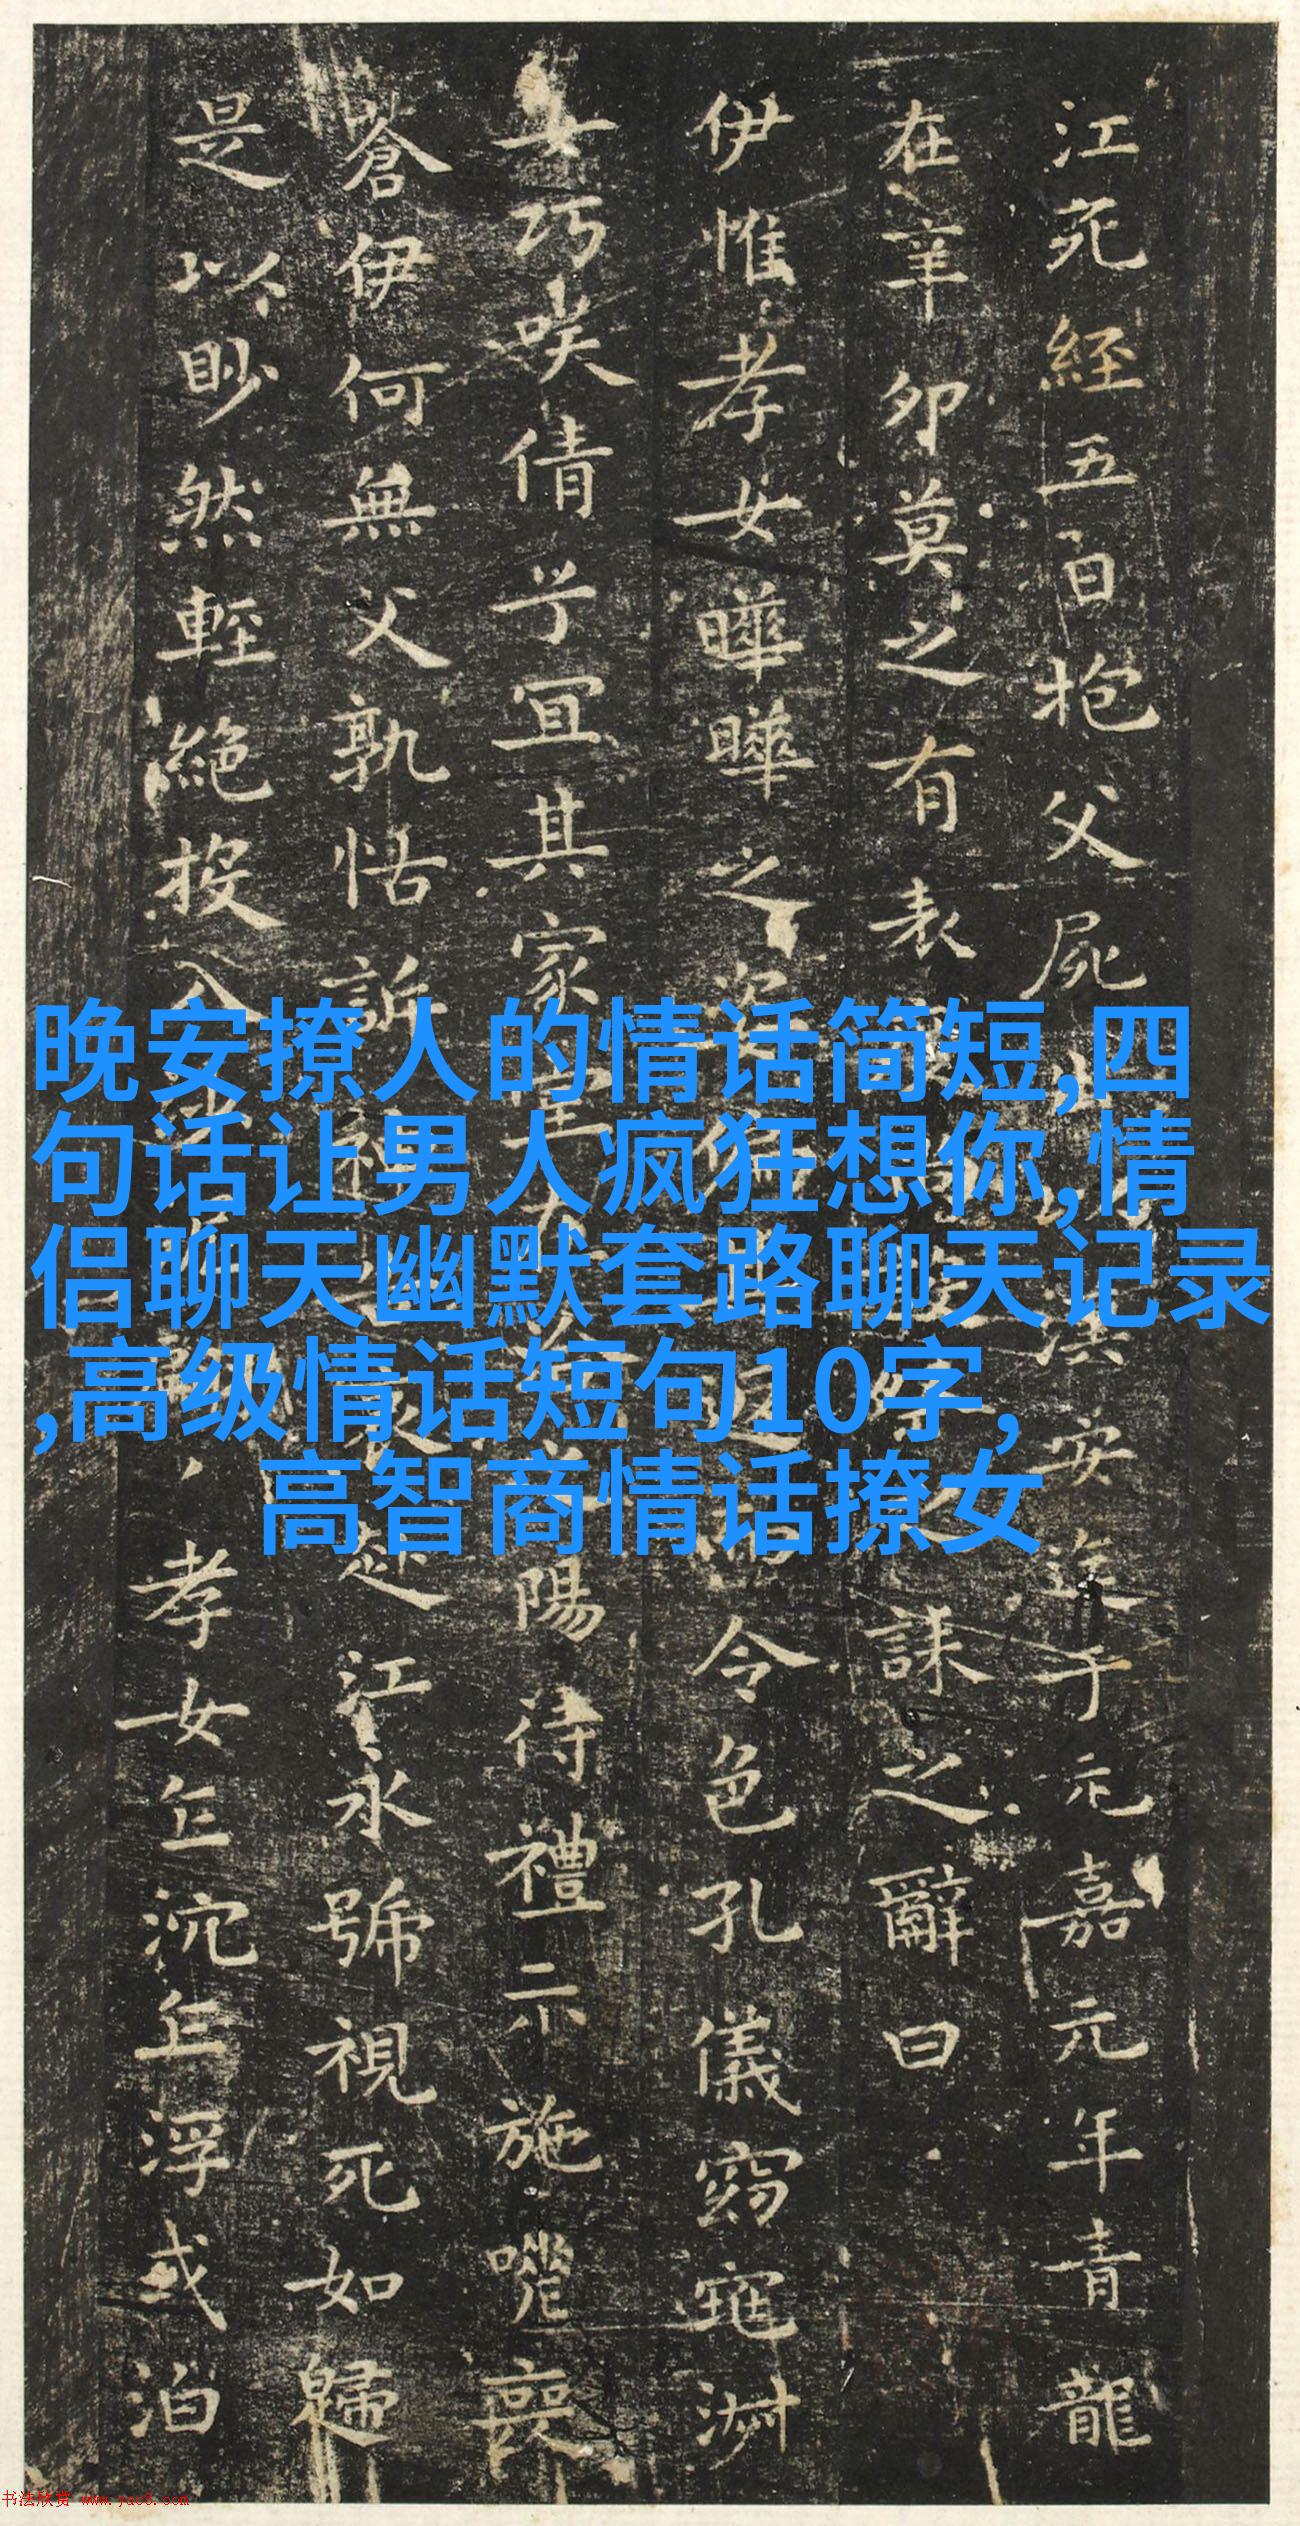 江死經五日抱父屍出
安送于元嘉元年青龍
在辛卯莫之有表
誄之辭曰
伊惟孝女曄曄之姿偏
令色孔儀窈窕淑
女巧笑倩兮宜其家室在
陽待禮未施嗟喪
蒼伊何無父孰怙訴
江永號視死如歸
是以眇然輕絕投入
孝女乍沉乍浮或泊
晚安撩人的情话简短,四
句话让男人疯狂想你,情
侣聊天幽默套路聊天记录
,高级情话短句10字,
高智商情话撩女
书法欣赏 www.yac8.com